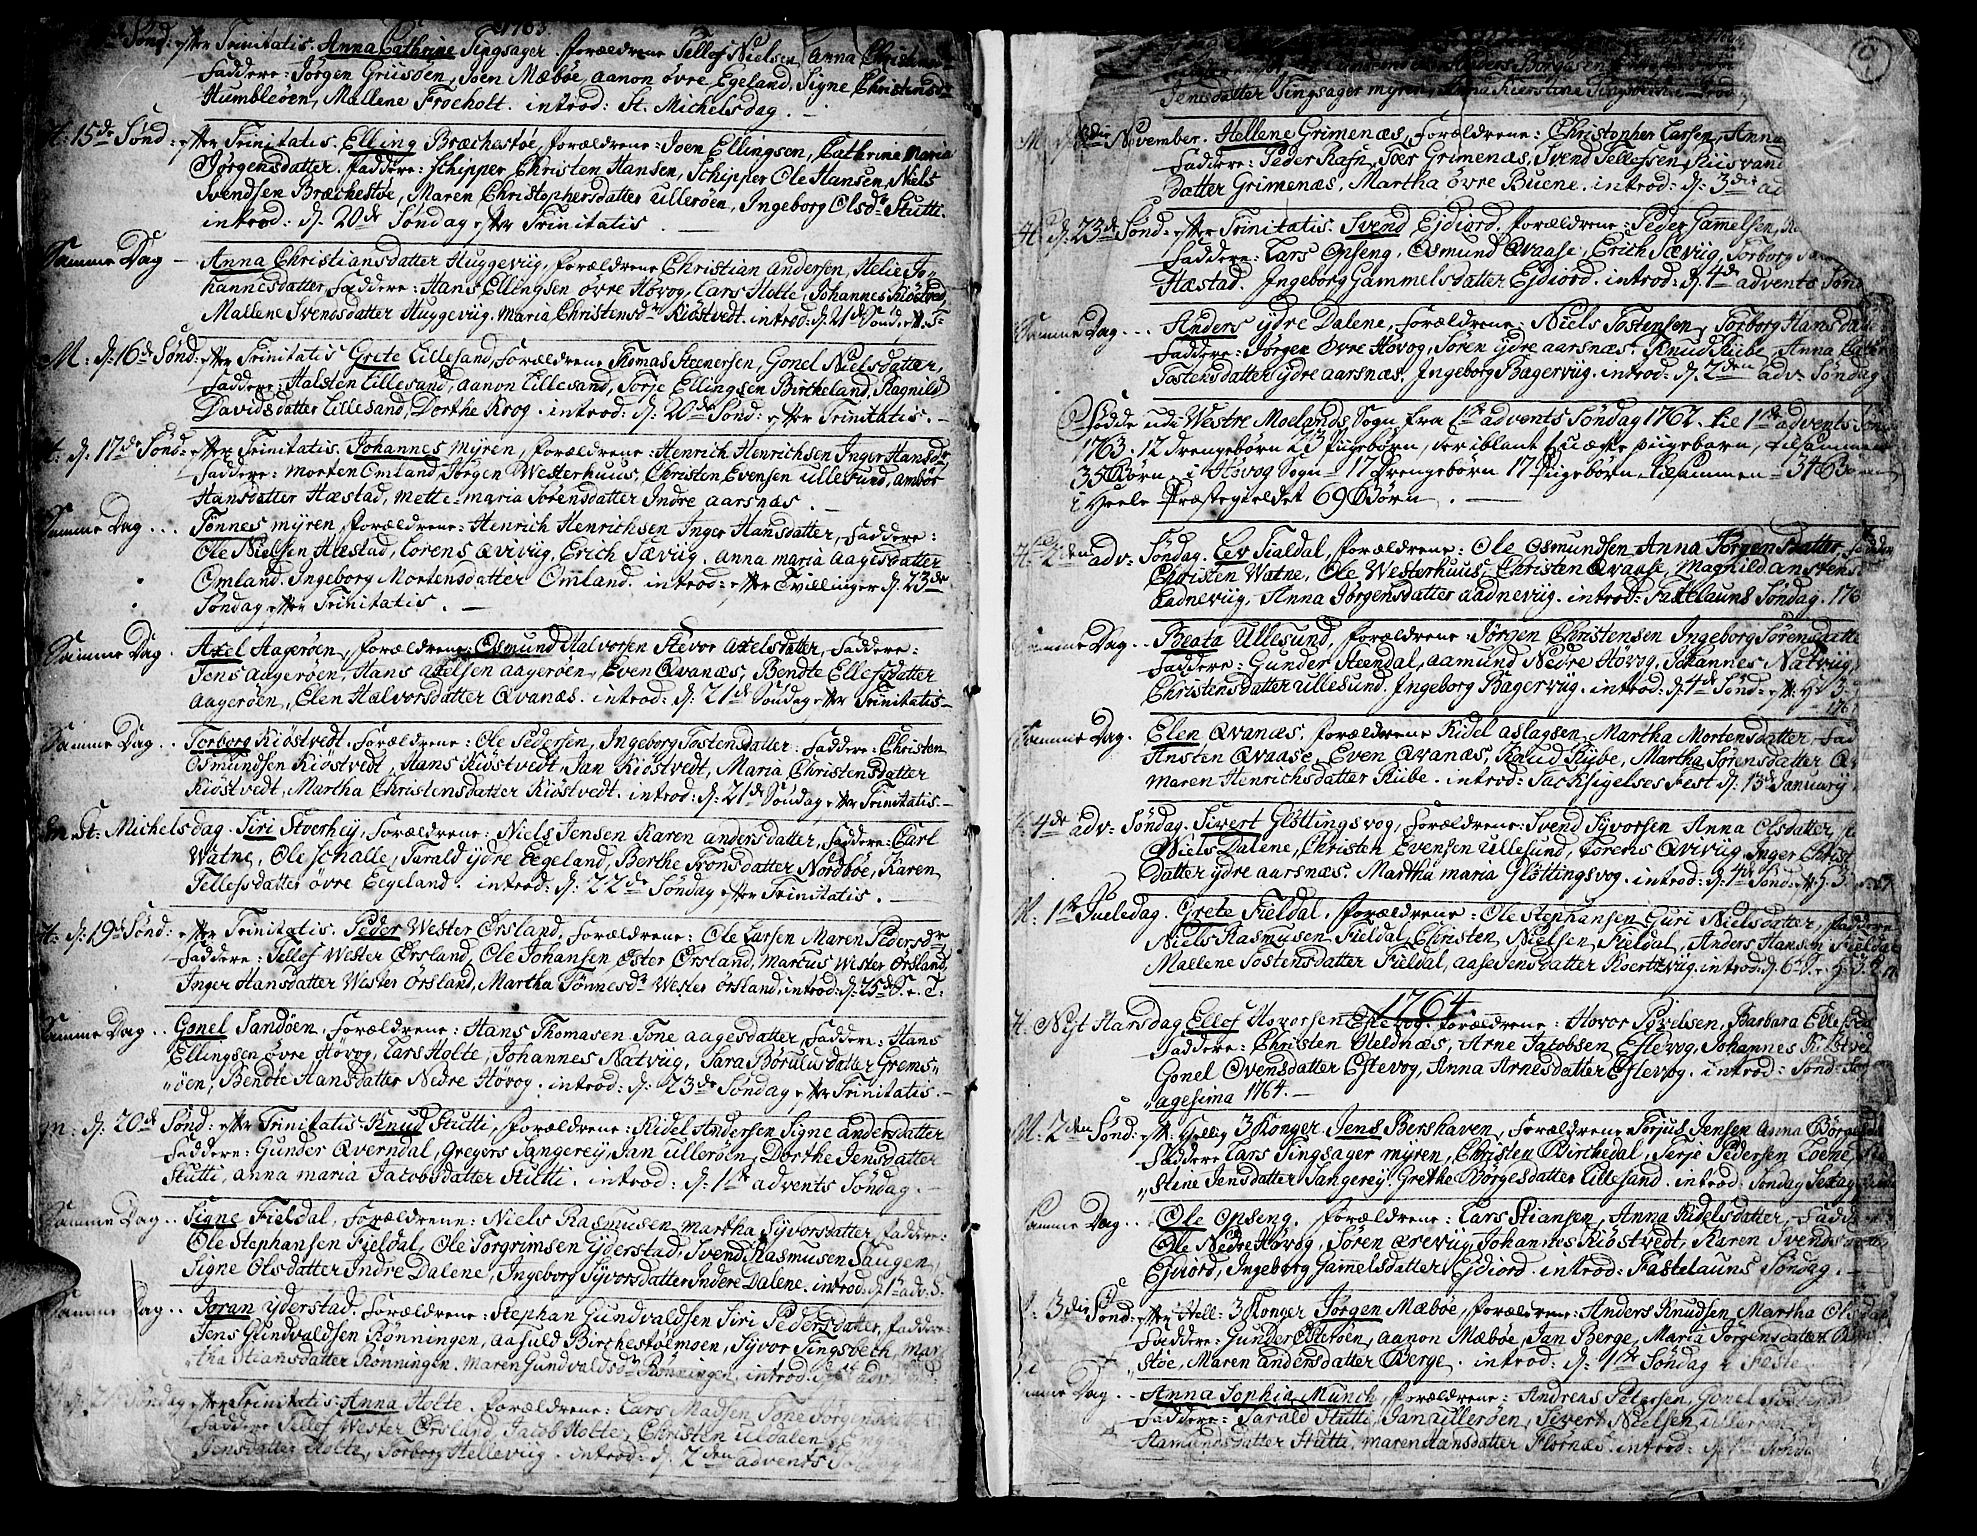 1763.
Sønd: efter Trinitatis. Anna Cathrine Tingsager. forældrene Tellof Nielsen, Anna Christens
faddere: Jørgen Griisøen, Joen Mæbøe, Aanon øvre Egeland, Signe Christensdr
Humbleøen, Mallene Froeholt. introd: St. Michelsdag.
H: 15de Sønd: efter Trinitatis. Elling Brækkestøe, forældrene: Joen Ellingsen, Cathrine Maria
Jørgensdatter. faddere: Schipper Christen Hansen, Schipper Ole Hansen, Niels
Svendsen Brækkestøe, Maren Christophersdatter Ullerøen, Ingeborg Olsdr Stutti.
introd: d: 20de Søndag efter Trinitatis.
Samme Dag - Anna Christiansdatter Huggeviig, forældrene Christian Andersen, Helie Jo-
hannesdatter, faddere: Hans Ellingsen øvre Høvog, Lars Holte, Johannes Kiøstved,
Mallene Svendsdatter Huggeviig. Maria Christensdr Kiøstvedt. introd: d. 21de Sønd: e. T:
M: d: 16de Sønd: efter Trinitatis Grete Lillesand, forældrene Thomas Steenersen, Gonel Nielsdatter,
faddere: Halsten Lillesand, Aanon Lillesand, Torje Ellingsen Birkeland, Ragnild
Davidsdatter Lillesand, Dorthe Krog. introd: d: 20de Sønd: efter Trinitatis.
H: d: 17de Sønd: efter Trinitatis. Johannes Myren, forældrene: Henrich Henrichsen Inger Hansdr
faddere: Morten Omland, Jørgen Westerhuus, Christen Evensen Ullesund, Ambor
Hansdatter Hæstad, Mette Maria Sørensdatter Indre Aarsnæs.
Samme Dag.. Tønnes Myren, forældrene: Henrich Henrichsen Inger Hansdatter, faddere:
Ole Nielsen Hæstad, Lorens Qviviig, Erich Sæviig. Anna Maria Aagesdatter
Omland. Ingeborg Mortensdatter Omland. introd: efter Tvillinger d: 23de
Søndag efter Trinitatis.
Samme Dag. Axel Aagerøen, forældrene: Osmund Halvorsen Stevor Axelsdatter, faddere:
Jens Aagerøen, Hans Axelsen Aagerøen, Even Qvanæs, Bendte Ellefsdatter
Aagerøen, Elen Halvorsdatter Qvanæs. introd: d: 21de Søndag efter Trinitatis
Samme Dag.. Torborg Kiøstvedt. forældrene: Ole Pedersen, Ingeborg Tostensdatter: faddere: Christen
Osmundsen Kiøstvedt, Hans Kiøstvedt, Jan Kiøstvedt, Maria Christensdatter
Kiøstvedt, Martha Christensdatter Kiøstvedt. introd: d: 21de Søndag efter Trinitatis
St: Michelsdag. Siri Stverhey, forældrene: Niels Jensen Karen Andersdatter, faddere: Carl
Watne, Ole Schalle, Tarald ydre Eegeland, Berthe Tronsdatter Nordbøe, Karen
Tellefsdatter øvre Eegeland. introd: d: 22de Søndag efter Trinitatis.
H: d: 19de Sønd: efter Trinitatis. Peder Wester Ørsland, forældrene: Ole Larsen Maren Pedersdr
faddere: Tellof Wester Ørsland, Ole Johansen Oster Ørsland, Marcus Wester Ørsland,
Inger Hansdatter Wester Ørsland, Martha Tønnesdr Wester Ørsland, introd: d: 25de S. e. T:
Samme Dag.. Gonel Sandøen, forældrene: Hans Thomasen Tone Aagesdatter, faddere: Hans
Ellingsen øvre Høvog, Lars Holte, Johannes Natviig, Sara Børulisdatter Grems"
"øen, Bendte Hansdatter Nedre Høvog. introd: d: 23de Søndag efter Trinitatis.
M. d: 20de Sønd: efter Trinitatis. Knud Stutti, forældrene: Kidel Andersen Signe Andersdatter
faddere: Gunder Qverndal, Gregers Tangerey, Jan Ullerøen, Dorthe Jensdatter
Stutti, Anna Maria Jacobsdatter Stutti. introd: d: 1ste Advents Søndag.
Samme Dag.. Signe Fieldal, forældrene: Niels Rasmusen Martha Syvorsdatter, faddere:
Ole Stephansen Fieldal, Ole Torgrimsen Yderstad, Svend Rasmusen Saugen,
Signe Olsdatter Indre Dalene, Ingeborg Syvorsdatter Indere Dalene. introd: d. 1te adv. S.
Samme Dag.. Joran Yderstad. forældrene: Stephan Gundvaldsen Siri Pedersdatter, faddere:
Jens Gundvaldsen Rønningen, Aasuld Birchestølmoen, Syvor Tingsvech, Mar
"tha Stiansdatter Rønningen. Maren Gundvaldsdr Rønningen, introd:
21 Søndag efter Trinitatis. Anna Holte. forældrene: Lars Madsen Tone Torgersd
faddere Tellof Wester Ørsland, Jacob Holte, Christen Uldalen,
Jensdatter Holte, Torborg Helleviig. introd: d. 2den Advents Søndag
Anders Børgesen
Jensdatter Tingsager Myren, Anna Kierstine Tingsvech
November. Hellene Grimenæs, forældrene: Christopher Larsen, Anna
faddere: Peder Rafn, Toer Grimenæs, Svend Tellefsen
datter Grimenæs, Martha øvre Buene. introd: d: 3die ad
H: d: 23de Sønd: efter Trinitatis. Svend Ejdiord, forældrene: Peder Gamelsen,
faddere: Lars Opseng, Osmund Qvaase, Erich Sæviig, Torborg
Hæstad. Ingeborg Gammelsdatter Ejdiord. introd: d: 4de advents Sønd
Samme Dag... Anders ydre Dalene, forældrene: Niels Tostensen, Torborg Hansda
faddere: Jørgen øvre Høvog, Søren ydre Aarsnæs. Knud Kiibe, Anna
Tostensdatter ydre Aarsnæs. Ingeborg Bagerviig. introd: d: 2den adv: Søndag
Fødde udi Westre Moelands Sogn fra 1ste advents Søndag 1762. til 1ste advents Sønd
1763. 12 drengebørn 23 piigebørn, der iblant 1 uægte piigebarn, tilsammen
35 Børn. i Høvog Sogn - 17 drengebørn 17 piigebørn tilsammen - 34 Børn
i Heele Præstegieldet 69 Børn.
H: 2den adv: Søndag. Lev Tialdal, forældrene: Ole Osmundsen Anna Jørgensdatter, fadder
Christen Watne, Ole Westerhuus, Christen Qvaase, Magnild Anstens
Aadneviig, Anna Jørgensdatter Aadneviig. introd: Fastelauns Søndag. 176
Samme Dag.. Beata Ullesund, forældrene: Jørgen Christensen Ingeborg Sørensdatte
faddere: Gunder Steendal, Aamund Nedre Høvog, Johannes Natviig,
Christensdatter Ullesund. Ingeborg Bagerviig. introd: d: 4de Sønd:
Samme Dag. Elen Qvanæs, forældrene Kidel Aslagsen, Martha Mortensdatter, fad
Ansten Qvaase, Even Qvanæs, Knud Kiibe, Martha Sørensdatter Qv
Maren Henrichsdatter Kiibe. introd: Tacksigelses fest d: 13de January
4de adv: Søndag. Sivert Gløttingsvog, forældrene: Svend Syvorsen Anna Olsdatter,
Niels Dalene, Christen Evensen Ullesund, Lorens Qviviig. Inger Christ
datter ydre Aarsnæs. Martha Maria Gløttingsvog. introd: d. 4de Sønd:
M. 1ste Juledag. Grete Fieldal, forældrene: Ole Stephansen Guri Nielsdatter, faddere
Niels Rasmusen Fieldal, Christen Nielsen Fieldal, Anders Hansen Fieldal
Mallene Tostensdatter Fieldal, Aase Jensdatter Koertviig. introd: d. 6
1764
H. Nyt Aarsdag Ellof Hovorsen Estevog, forældrene: Hovor Povelsen, Barbara Ellefsda
faddere: Christen Heldnæs, Arne Jacobsen Estevog, Johannes Kiøstved
Gonel Ovensdatter Estevog, Anna Arnesdatter Estevog. introd: Sønd:
"agesima 1764.
M. 2den Sønd: eft: Hellig 3 Konger Jens Bershaven, forældrene Torjus Jensen Anna Børgesda
faddere Lars Tingsager Myren, Christen Birkedal, Terje Pedersen Loene,
"Stine Jensdatter Tangerey. Grethe Børgesdatter Lillesand. introd: Søndag Sexag
Samme Dag.. Ole Opseng. forældrene: Lars Stiansen, Anna Kidelsdatter, fadd
Ole Nedre Høvog, Søren Qreviig, Johannes Kiøstvedt, Karen Svends
Ejdiord, Ingeborg Gamelsdatter Ejdiord. introd: Fastelauns Søndag.
3die Sønd: efter Hell: 3 Konger Jørgen Mæbøe, forældrene: Anders Knudsen, Martha Olsda
faddere: Gunder Osterøen, Aanon Mæbøe, Jan Berge, Maria Jørgensdatter
"støe, Maren Andersdatter Berge. introd: d: 1ste Søndag i Faste
Samme Dag.. Anna Sophia Munch, forældrene: Andreas Petersen, Gonel
faddere: Tarald Stutti, Jan Ullerøen, Sivert Nielsen Ullerøen
Aamundsdatter Stutti, Maren Hansdatter Flørnæs. introd: